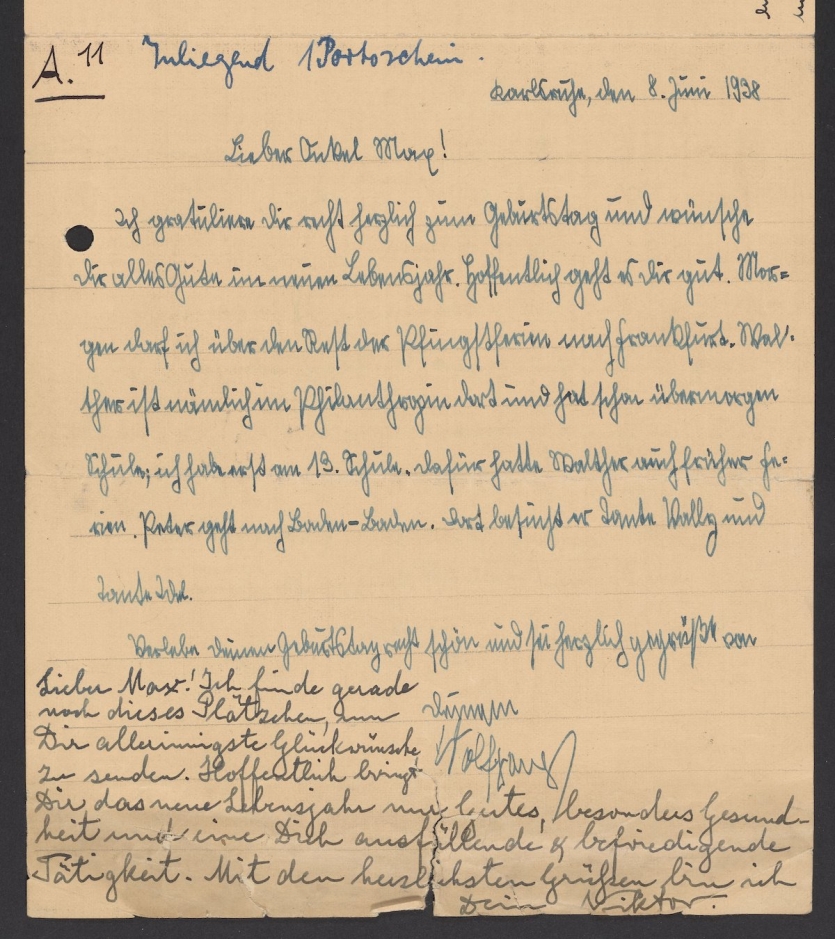 A. 11 Inliegend 1 Portoschein.
Karlsruhe, den 8. Juni 1938
Lieber Onkel Max!
Ich gratuliere dir recht herzlich zum Geburtstag und wünsche
dir alles Gute im neuen Lebensjahr. Hoffentlich geht es dir gut. Mor=
gen darf ich über den Rest der Pfingstferien nach Frankfurt. Wal-
ther ist nämlich im Philanthropin dort und hat schon übermorgen
Schule; ich habe erst am 13. Schule. Dafür hatte Walther auch früher Fe=
rien. Peter geht nach Baden-Baden. Dort besucht er Tante Vally und
Tante Idel.
Verlebe deinen Geburtstag recht schön und sei herzlich gegrüßt von
deinem
Wolfgang
Lieber Max! Ich finde gerade
noch dieses Plätzchen, um
Dir allerinnigste Glückwünsche
zu senden. Hoffentlich bringt
Dir das neue Lebensjahr nur Gutes, besonders Gesund-
heit und eine Dich ausfüllende & befriedigende
Tätigkeit. Mit den herzlichsten Grüßen bin ich
Dein Viktor.